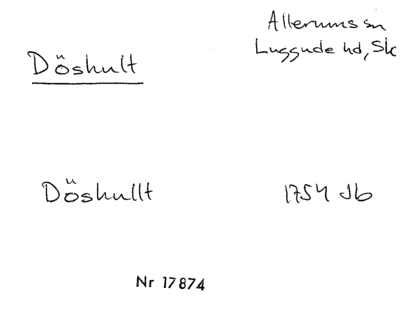 Allerums sn
Luggude hd, Sk
Döshult
Döshullt 1754 Jb
Nr 17874